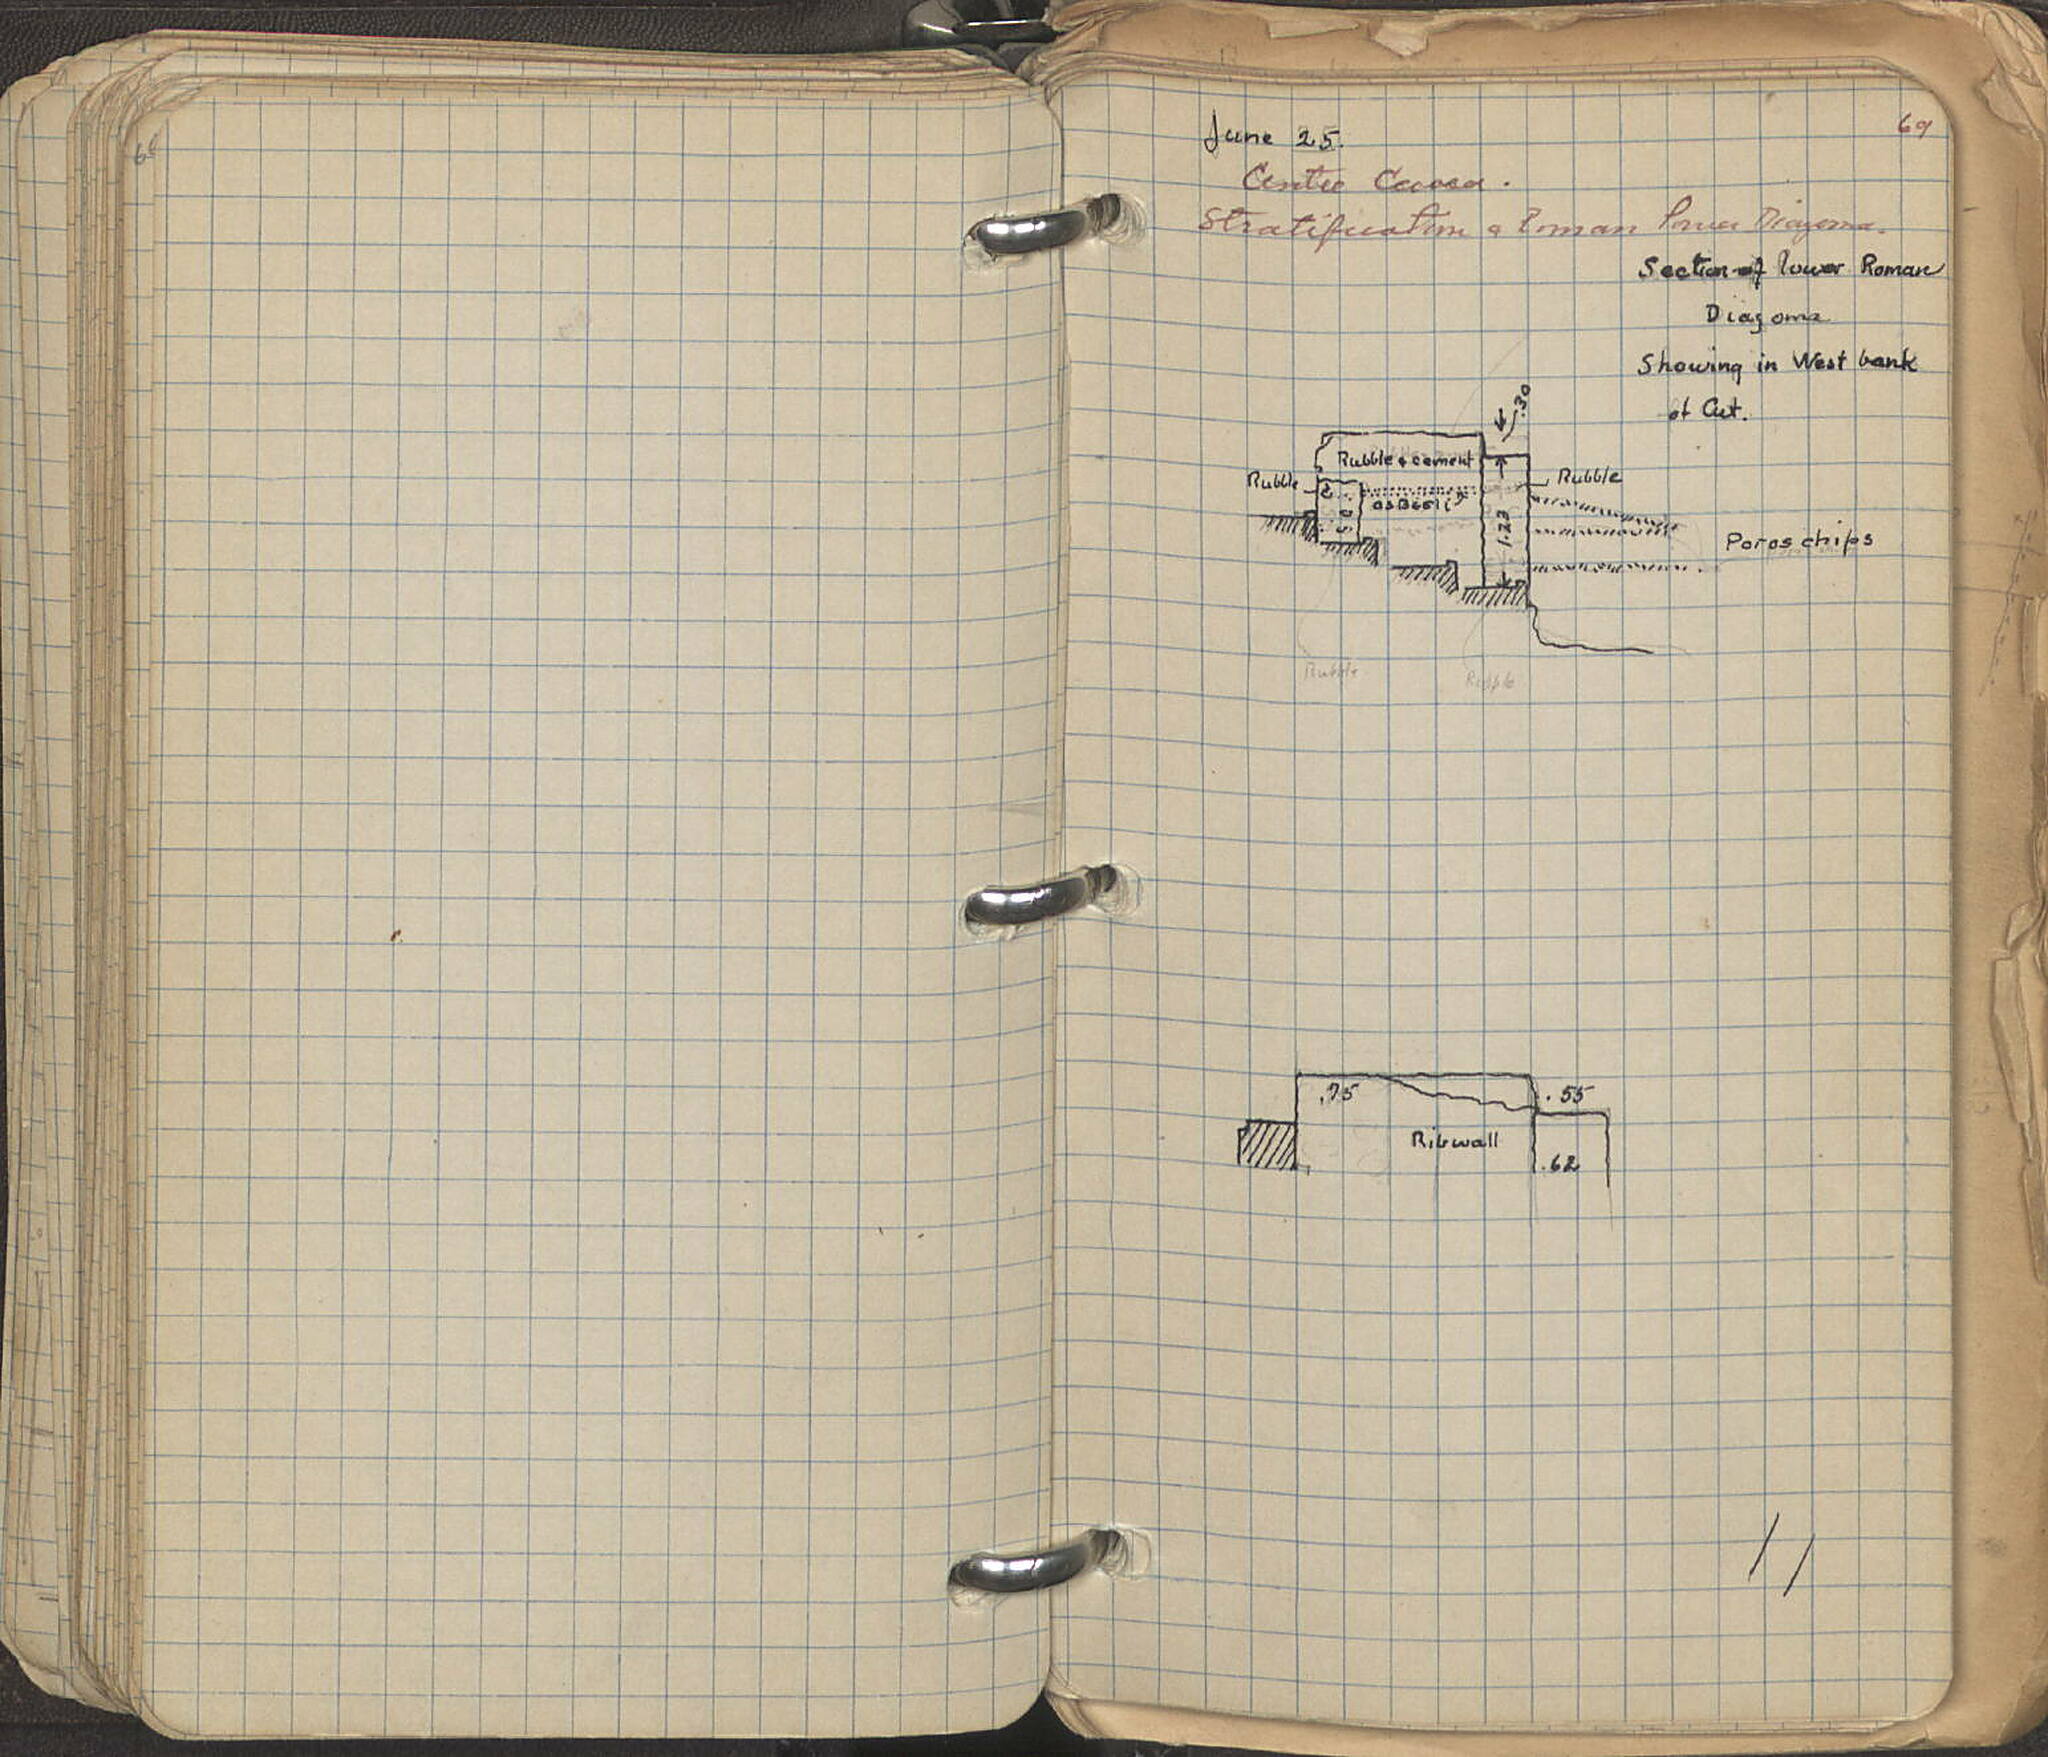 69
June 25.
Centre Cavea.
Stratification & Roman Lower Diazoma.
Section of lower Roman
Diazoma
Showing in West bank
of Cut.
.30
Rubble & cement
Rubble
Rubble
1.23
Poros chips
Rubble
Rubble
.75
.55
Ribwall
.62